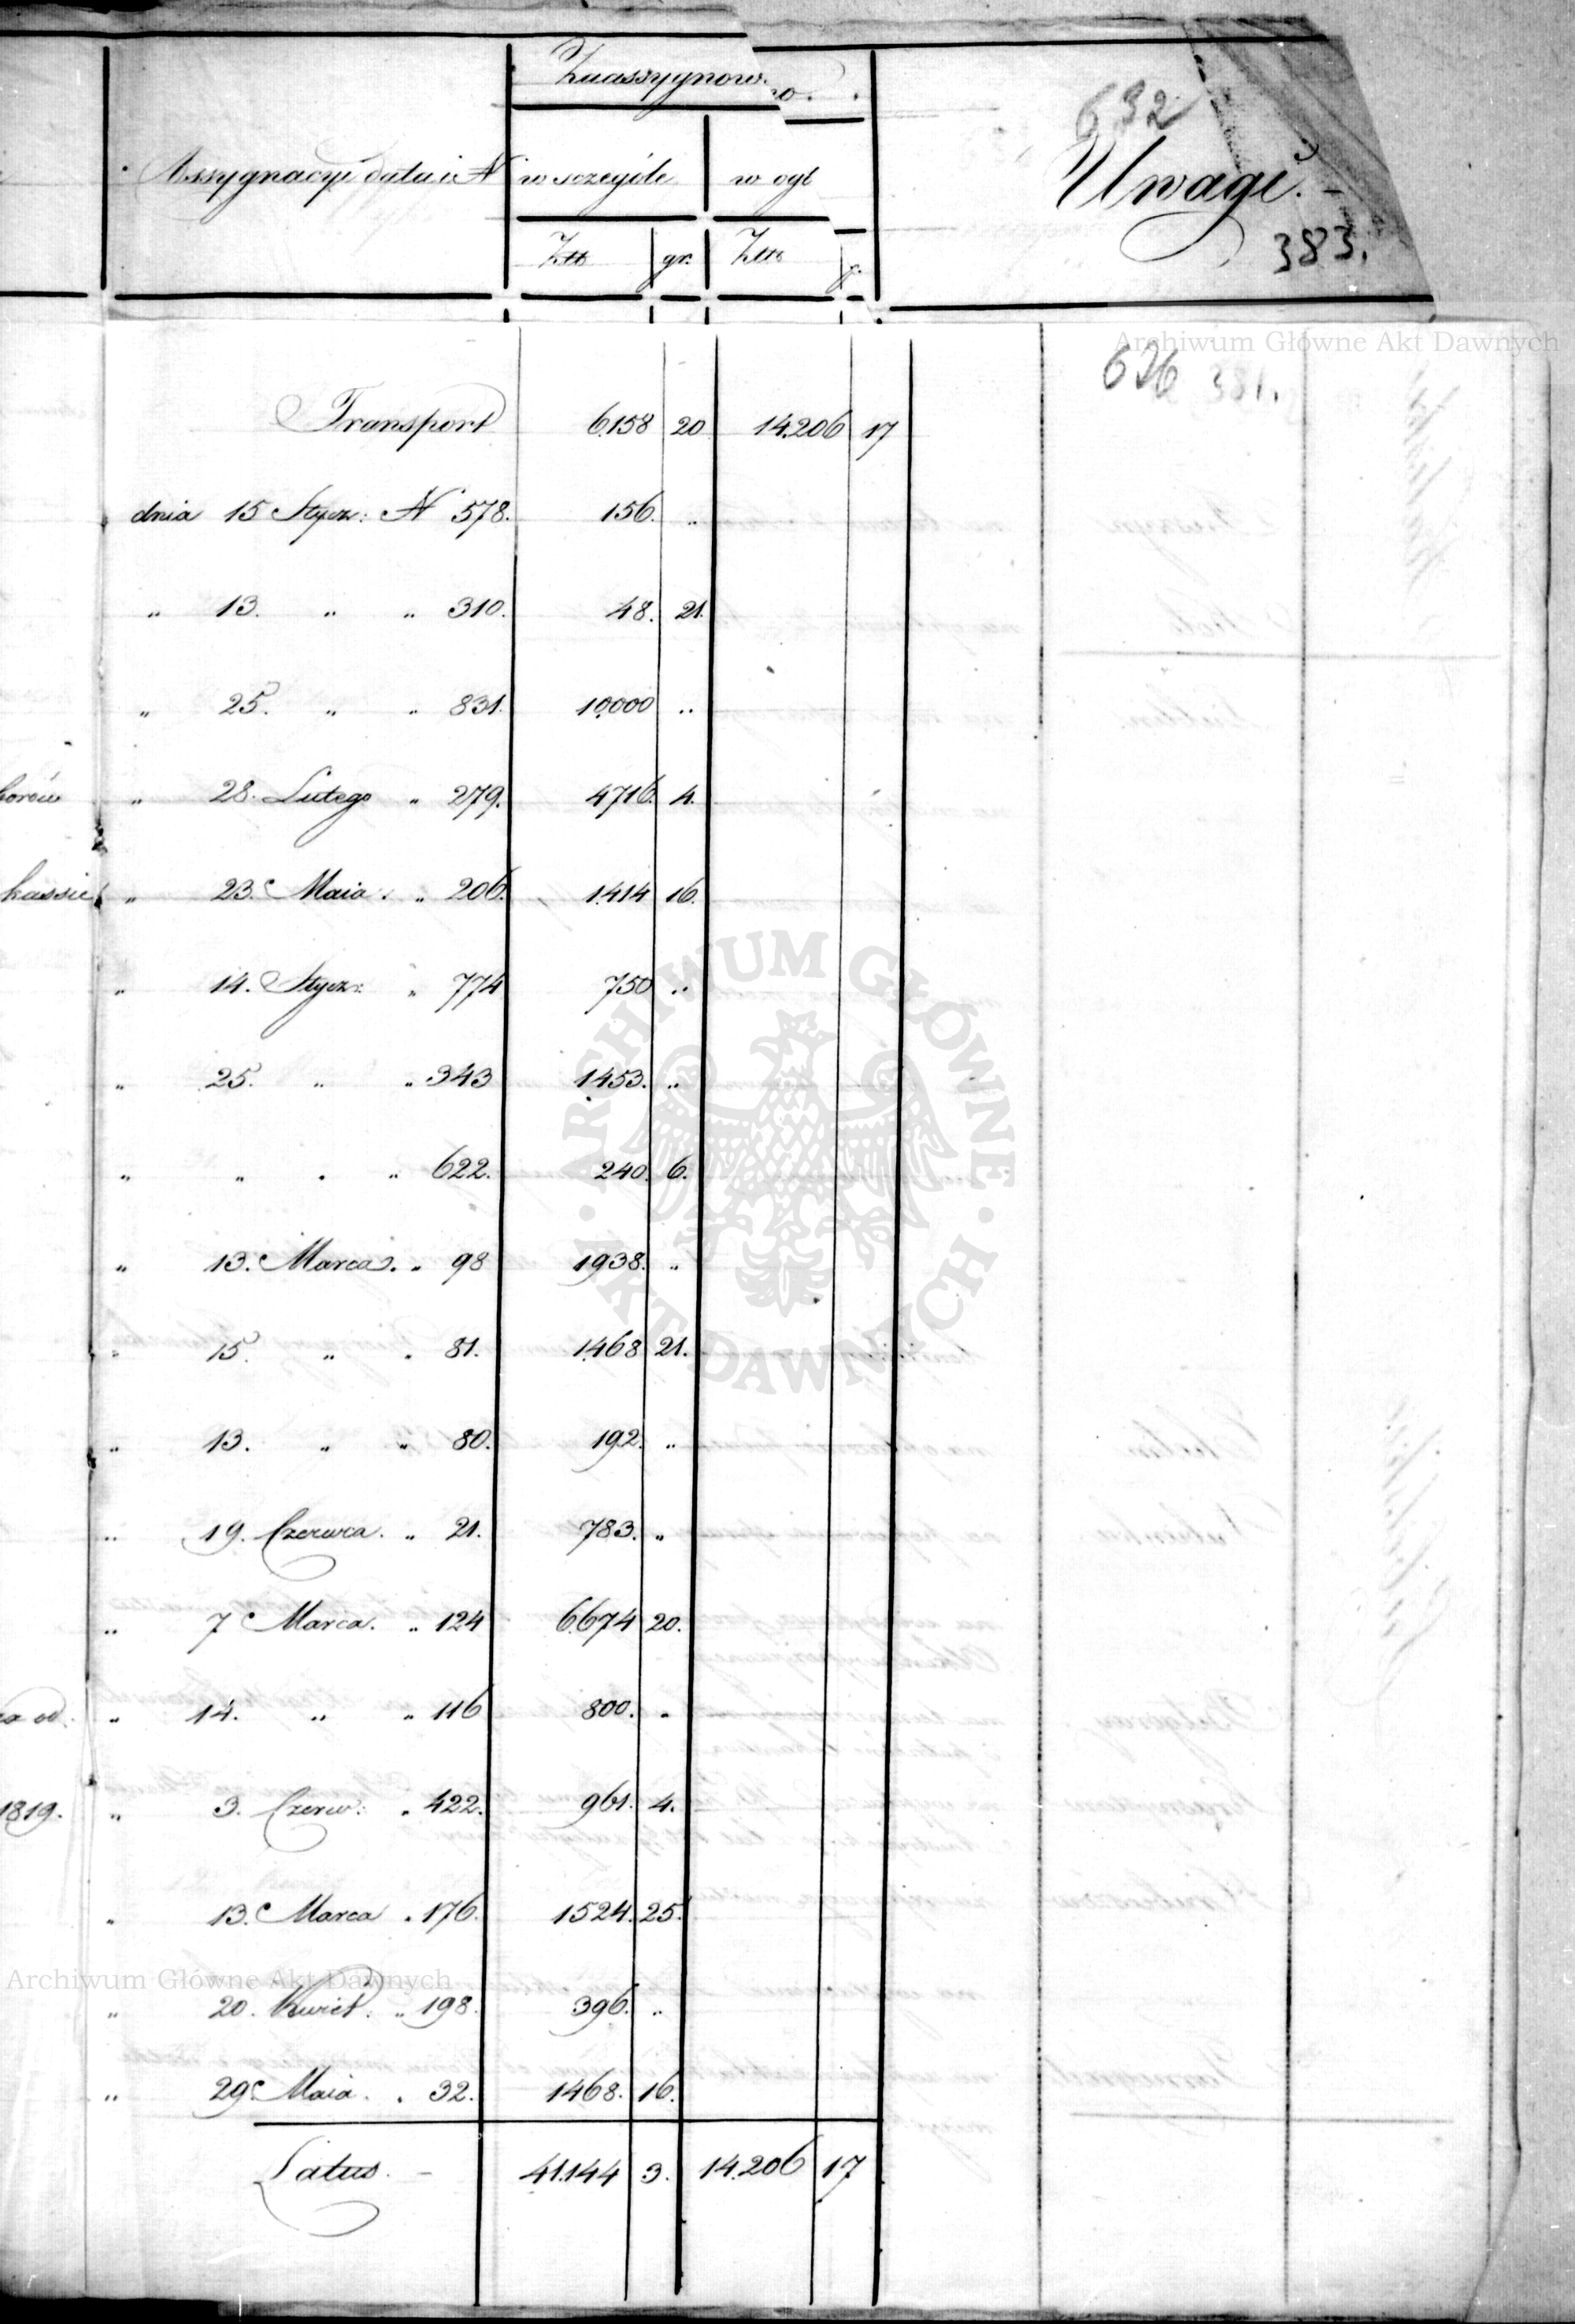 Zaassygnow. o.
632
Assygnacyi data i N w szczególe w ogl Uwagi.
383.
Złt gr. Złt g.
Archiwum Główne Akt Dawnych
626 381.
Transport 6158 20 14.206 17
dnia 15 Stycz: N 578. 156. ..
" 13. " " 310. 48. 21.
" 25. " " 831. 10,000 ..
borów " 28. Lutego " 279. 4716. 4.
kassie " 23. Maia. " 206. 1414 16.
" 14. Stycz: " 774 750 ..
" 25. " " 343 1453. ..
" " " " 622. 240. 6.
" 13. Marca. " 98 1938. ..
" 15. " " 81. 1468 21.
" 13. " " 80. 192. ..
" 19. Czerwca. " 21. 783. "
" 7 Marca. " 124 6.674 20.
" 14. " " 116 800. "
1819. " 3. Czerw: " 422. 961. 4.
" 13. Marca " 176. 1524. 25.
Archiwum Główne Akt Dawnych
" 20. Kwiet. " 198. 396. ..
" 29. Maia. " 32. 1468. 16.
Latus. - 41.144 3. 14.206 17
ARCHIWUM GŁÓWNE AKT DAWNYCH